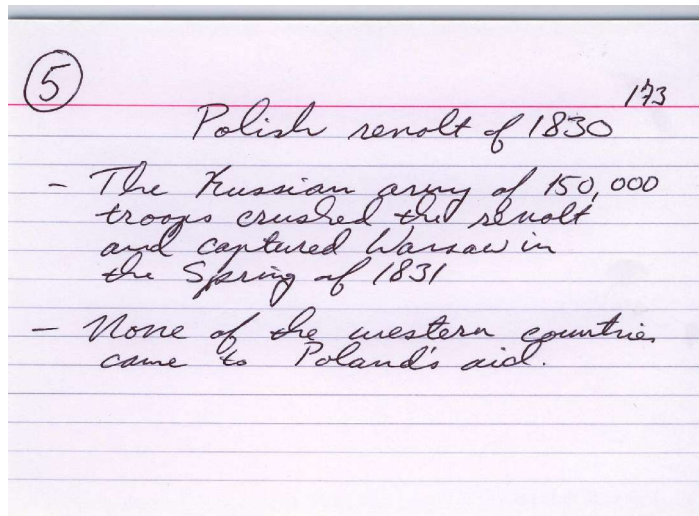 5
173
Polish revolt of 1830
- The Russian army of 150,000
troops crushed the revolt
and captured Warsaw in
the Spring of 1831
- None of the western countries
came to Poland's aid.